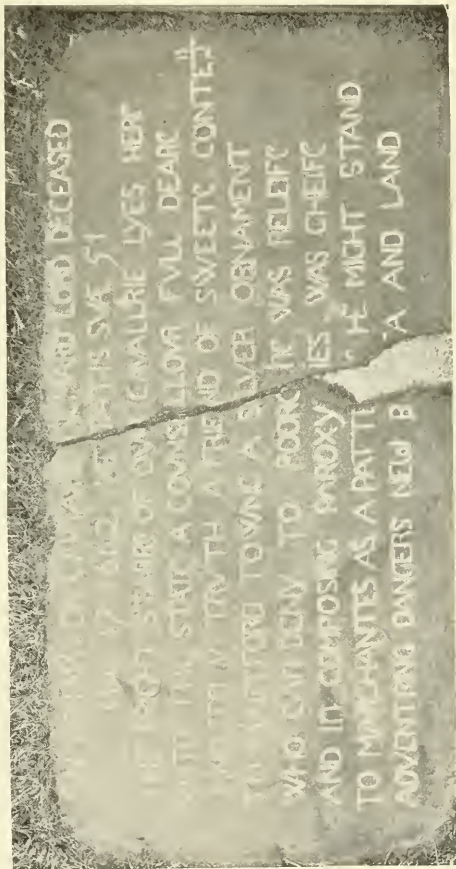 LORD DECEASED
51
BRIGHT STARRE OF OVR CAVALLRIE LYES HERE
STATE A COVNSELLOVR FVLL DEARE
TRVTH A FRIEND OF SWEETE CONTET
TO HARTFORD TOWNE A SILVER ORNAMENT
WHO CAN DENY TO POORE HE WAS RELEIFE
AND IN COMPOSING PAROXY IES WAS CHEIFE
TO MARCHANTES AS A PATTE HE MIGHT STAND
ADVENTRING DANGERS NEW B A AND LAND